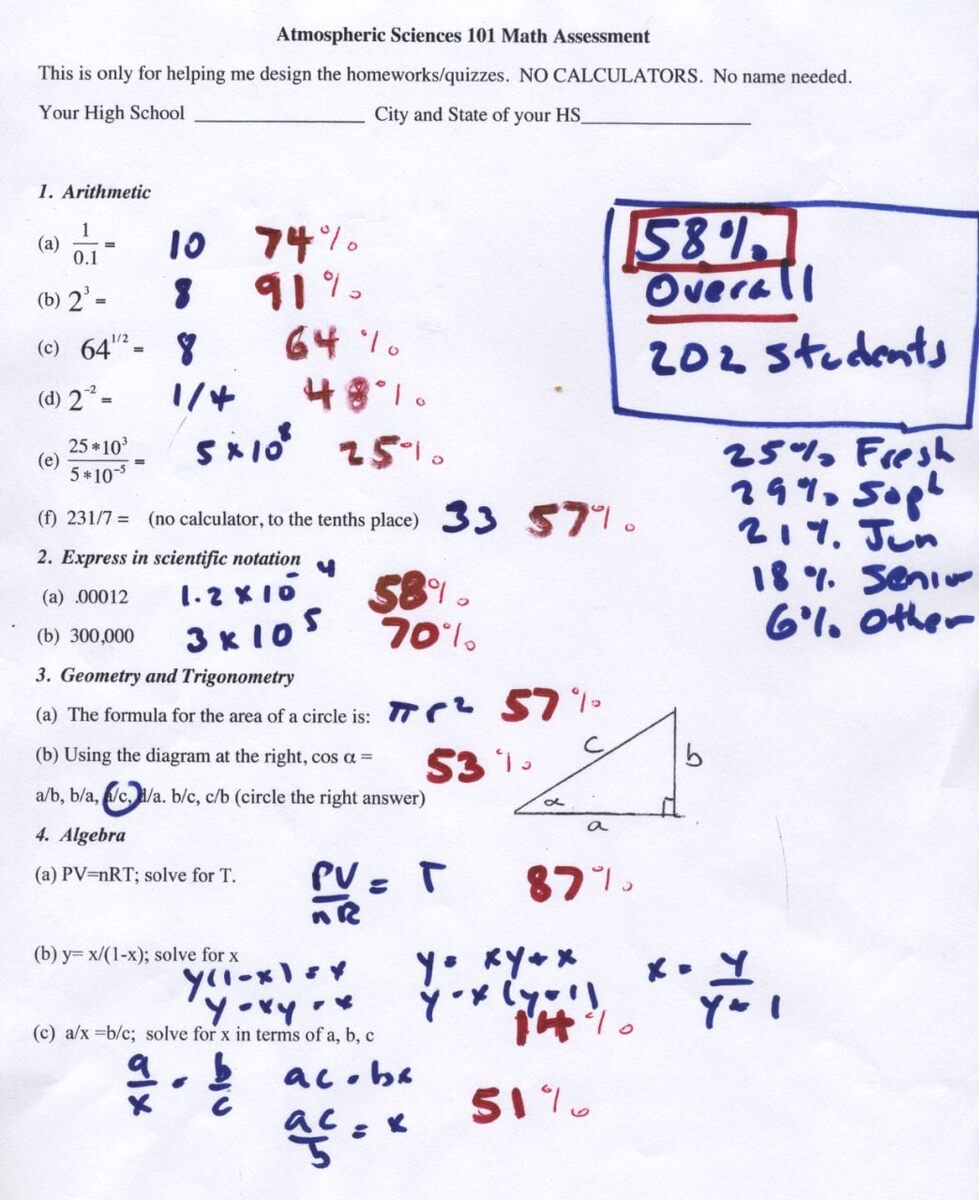 Atmospheric Sciences 101 Math Assessment
This is only for helping me design the homeworks/quizzes. NO CALCULATORS. No name needed.
Your High School ________________ City and State of your HS________________
1. Arithmetic
(a) 1/0.1 = 10 74%
(b) 2³ = 8 91%
(c) 64^1/2 = 8 64%
(d) 2^-2 = 1/4 48%
(e) 25*10³/5*10^-5 = 5 x 10^8 25%
(f) 231/7 = (no calculator, to the tenths place) 33 57%
58%
Overall
202 students
25% Fresh
29% Soph
21% Jun
18% Senior
6% Other
2. Express in scientific notation
(a) .00012 1.2 x 10^-4 58%
(b) 300,000 3 x 10^5 70%
3. Geometry and Trigonometry
(a) The formula for the area of a circle is: πr² 57%
(b) Using the diagram at the right, cos α = 53%
a/b, b/a, a/c, 1/a. b/c, c/b (circle the right answer)
c
b
α
a
4. Algebra
(a) PV=nRT; solve for T. PV/nR = T 87%
(b) y= x/(1-x); solve for x
y(1-x) = x
y-xy = x
y = xy + x
y = x (y+1)
x = y/y+1
14%
(c) a/x =b/c; solve for x in terms of a, b, c
a/x = b/c
ac = bx
ac/b = x
51%